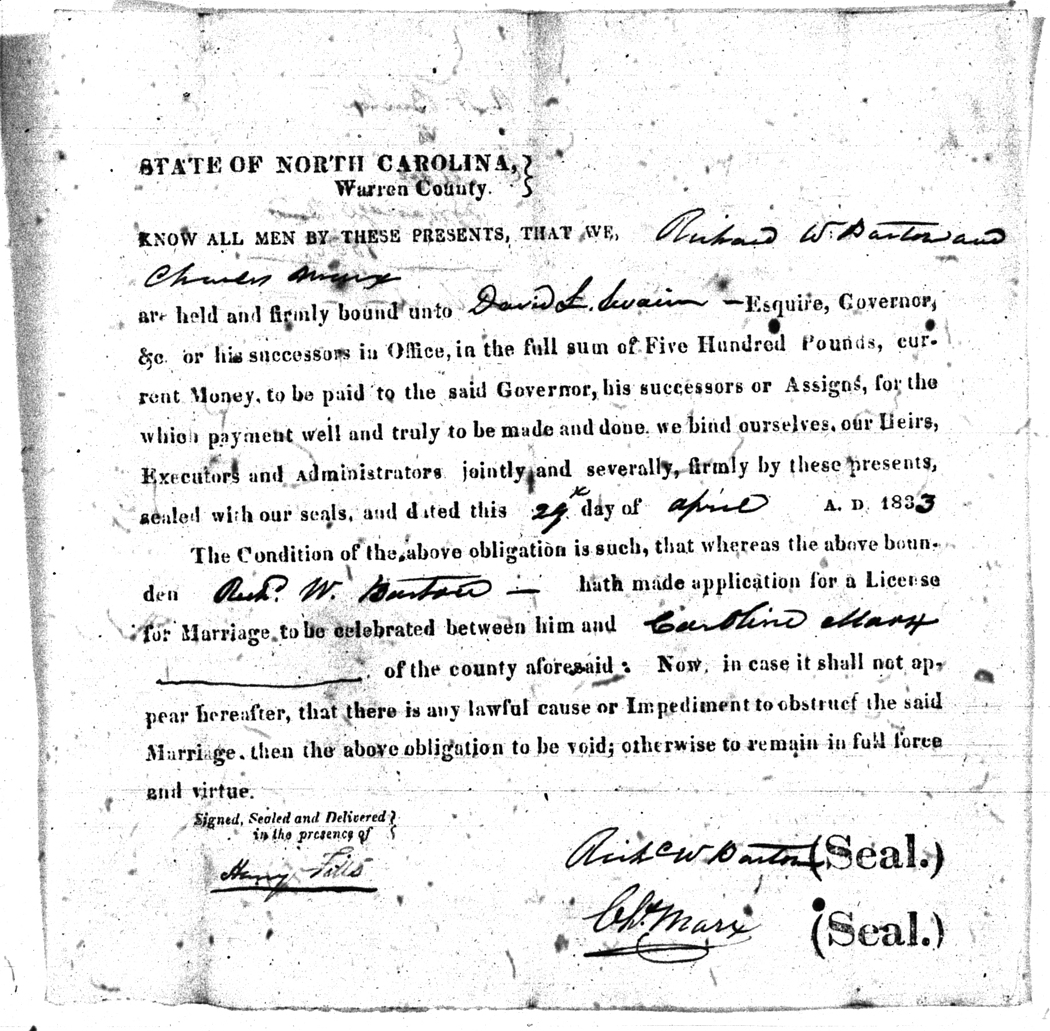 STATE OF NORTH CAROLINA,
Warren County.
KNOW ALL MEN BY THESE PRESENTS, THAT WE, Richard W. Barton and
Charles Marx
are held and firmly bound unto David L. Swain — Esquire, Governor,
&c. or his successors in Office, in the full sum of Five Hundred Pounds, cur-
rent Money, to be paid to the said Governor, his successors or Assigns, for the
which payment well and truly to be made and done, we bind ourselves, our Heirs,
Executors and Administrators jointly and severally, firmly by these presents,
sealed with our seals, and dated this 29th day of april A. D. 1833
The Condition of the above obligation is such, that whereas the above boun-
den Richd. W. Barton — hath made application for a License
for Marriage to be celebrated between him and Caroline Marx
of the county aforesaid: Now, in case it shall not ap-
pear hereafter, that there is any lawful cause or Impediment to obstruct the said
Marriage, then the above obligation to be void; otherwise to remain in full force
and virtue.
Signed, Sealed and Delivered
in the presence of
Henry Fitts
Richd W Barton (Seal.)
Chs. Marx (Seal.)